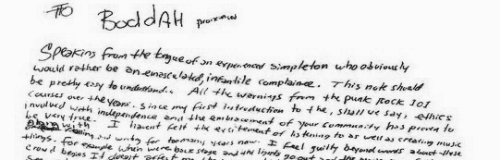 To BoddAH
Speaking from the tongue of an experienced simpleton who obviously
would rather be an emasculated, infantile complainee. This note should
be pretty easy to understand. All the warnings from the punk Rock 101
courses over the years. since my first introduction to the, shall we say, ethics
involved with independence and the embracement of your community has proven to
be very true. I havent felt the excitement of listening to as well as creating music
along with and writing for too many years now. I feel guilty beyond words about these
things. for example when were back stage and the lights go out and the
crowd begins It doesnt affect me the